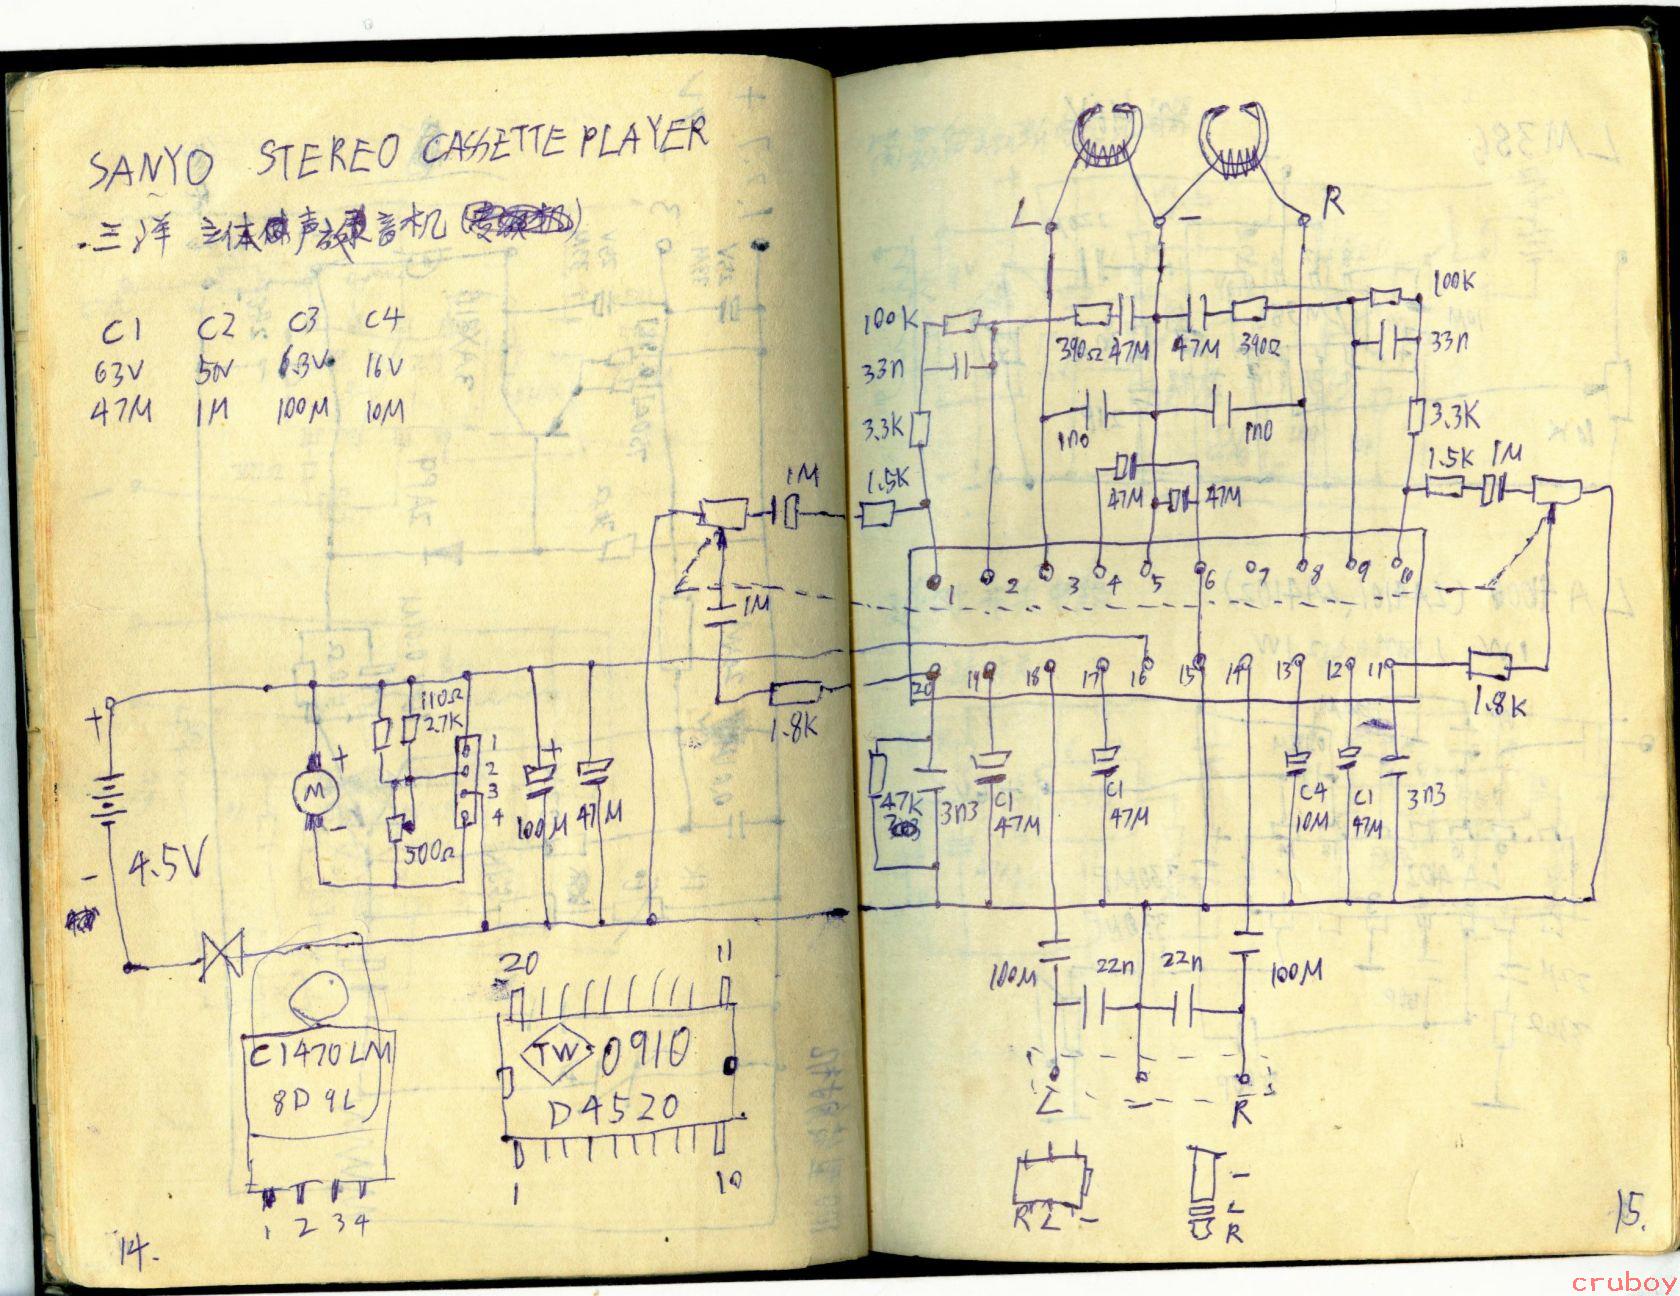 SANYO STEREO CASSETTE PLAYER
三洋 立体声放音机
C1 C2 C3 C4
63V 50V 6.3V 16V
47M 1M 100M 10M
1M
1M
1.8K
+
-
4.5V
M
+
-
110Ω
2.7K
500Ω
1
2
3
4
+
100M
47M
C1470LM
8D 9L
1 2 3 4
20 11
TW 0910
D4520
1 10
14.
L - R
100K
33n
3.3K
1.5K
390Ω 47M 47M 390Ω
100K
33n
3.3K
1.5K 1M
1n0 1n0
47M 47M
1 2 3 4 5 6 7 8 9 10
20 19 18 17 16 15 14 13 12 11
1.8K
47K
3n3
C1
47M
C1
47M
C4
10M
C1
47M
3n3
100M 22n 22n 100M
L - R
R L -
-
L
R
15.
cruboy